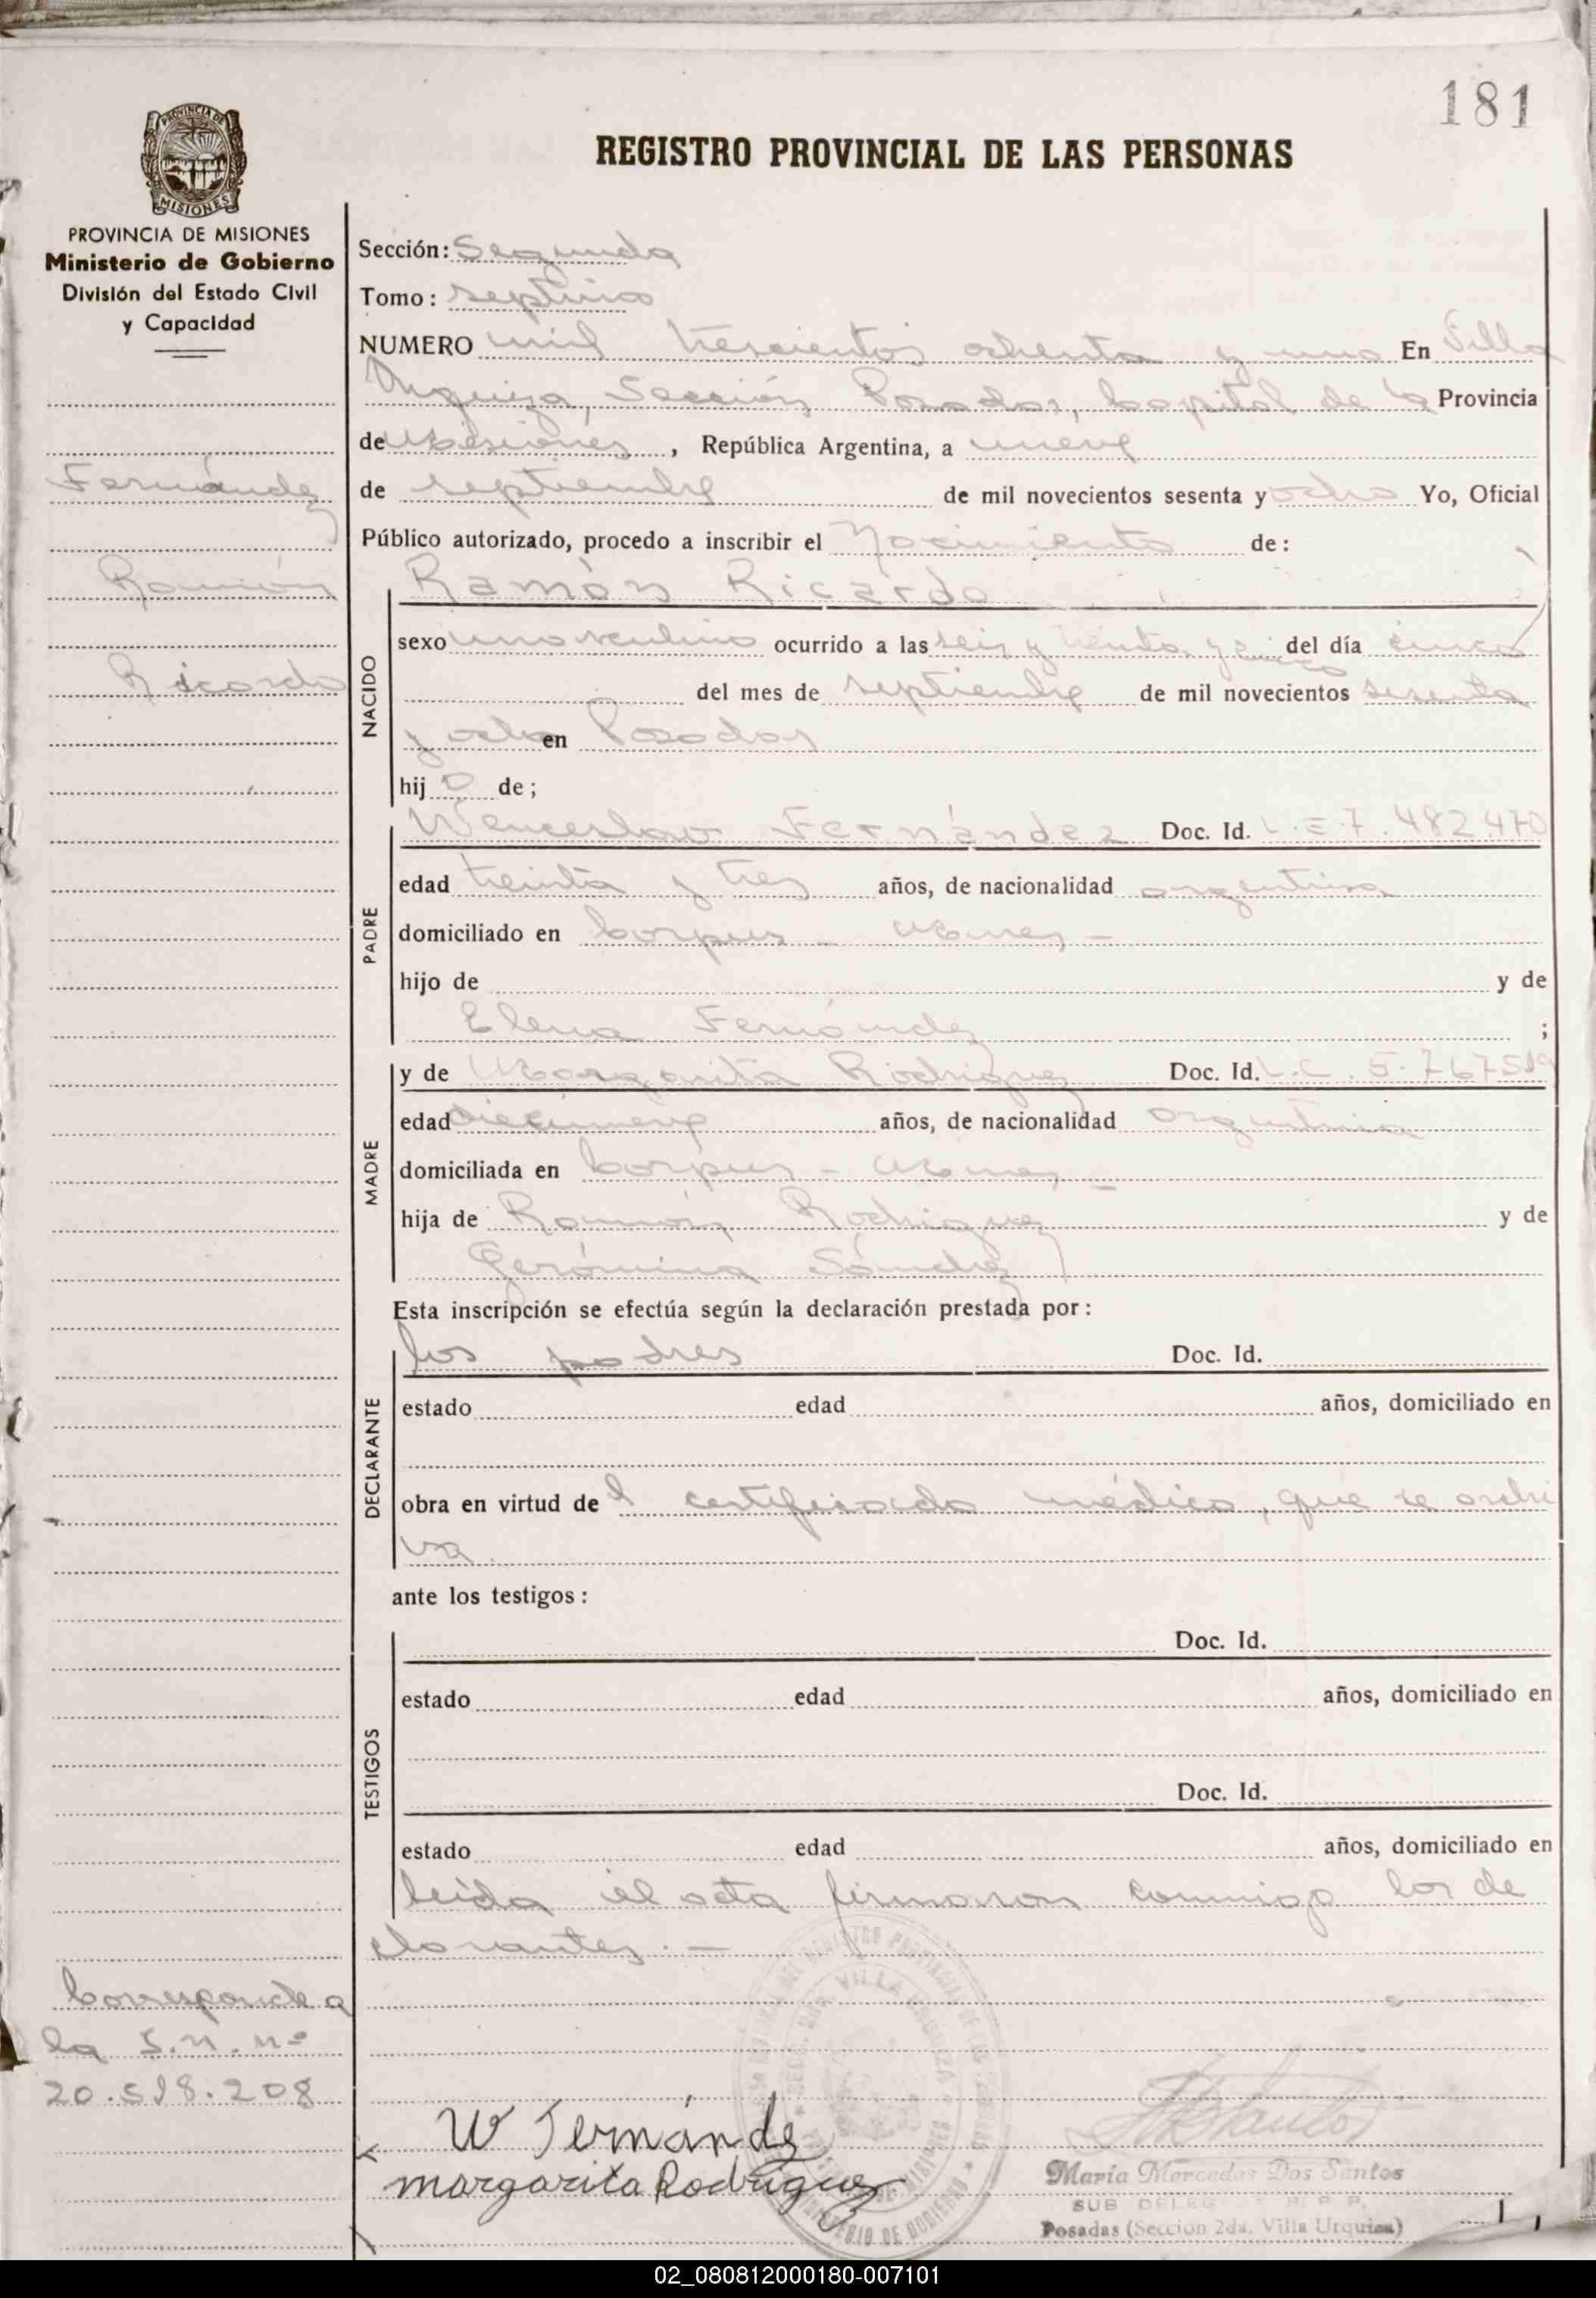 181
PROVINCIA DE
MISIONES
REGISTRO PROVINCIAL DE LAS PERSONAS
PROVINCIA DE MISIONES
Ministerio de Gobierno
División del Estado Civil
y Capacidad
Fernandez
Ramón
Ricardo
Sección: Segunda
Tomo: septimo
NUMERO mil trescientos ochenta y uno En Villa
Urquiza, Sección Posadas, Capital de la Provincia
de Misiones, República Argentina, a nueve
de septiembre de mil novecientos sesenta y ocho Yo, Oficial
Público autorizado, procedo a inscribir el Nacimiento de:
NACIDO
Ramón Ricardo
sexo masculino ocurrido a las seis y treinta y cinco del día cinco
del mes de septiembre de mil novecientos sesenta
y ocho en Posadas
hij o de;
PADRE
Wenceslao Fernández Doc. Id. L.E. 7.482.470
edad treinta y tres años, de nacionalidad argentina
domiciliado en Corpus - Mnes -
hijo de y de
Elena Fernández ;
MADRE
y de Margarita Rodriguez Doc. Id. L.C. 5.767.519
edad diecinueve años, de nacionalidad argentina
domiciliada en Corpus - Mnes -
hija de Ramón Rodriguez y de
Gerónima Sánchez
Esta inscripción se efectúa según la declaración prestada por:
DECLARANTE
los padres Doc. Id.
estado edad años, domiciliado en
obra en virtud del certificado médico, que se archi
va.
ante los testigos:
TESTIGOS
Doc. Id.
estado edad años, domiciliado en
Doc. Id.
estado edad años, domiciliado en
leída el acta firmaron conmigo los de
clarantes. -
Corresponde a
la S.N. nº
20.518.208
W Fernández
margarita Rodriguez
María Mercedes Dos Santos
SUB DELEG R. P. P.
Posadas (Sección 2da. Villa Urquiza)
02_080812000180-007101